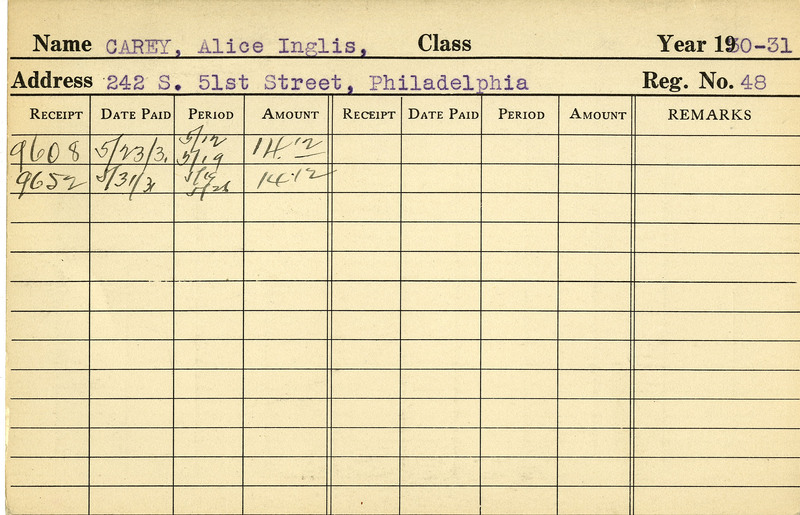 Name CAREY, Alice Inglis, Class Year 1930-31
Address 242 S. 51st Street, Philadelphia Reg. No. 48
RECEIPT DATE PAID PERIOD AMOUNT RECEIPT DATE PAID PERIOD AMOUNT REMARKS
9608 5/23/31 5/12 5/19 14.12
9652 5/31/31 5/19 5/26 14.12